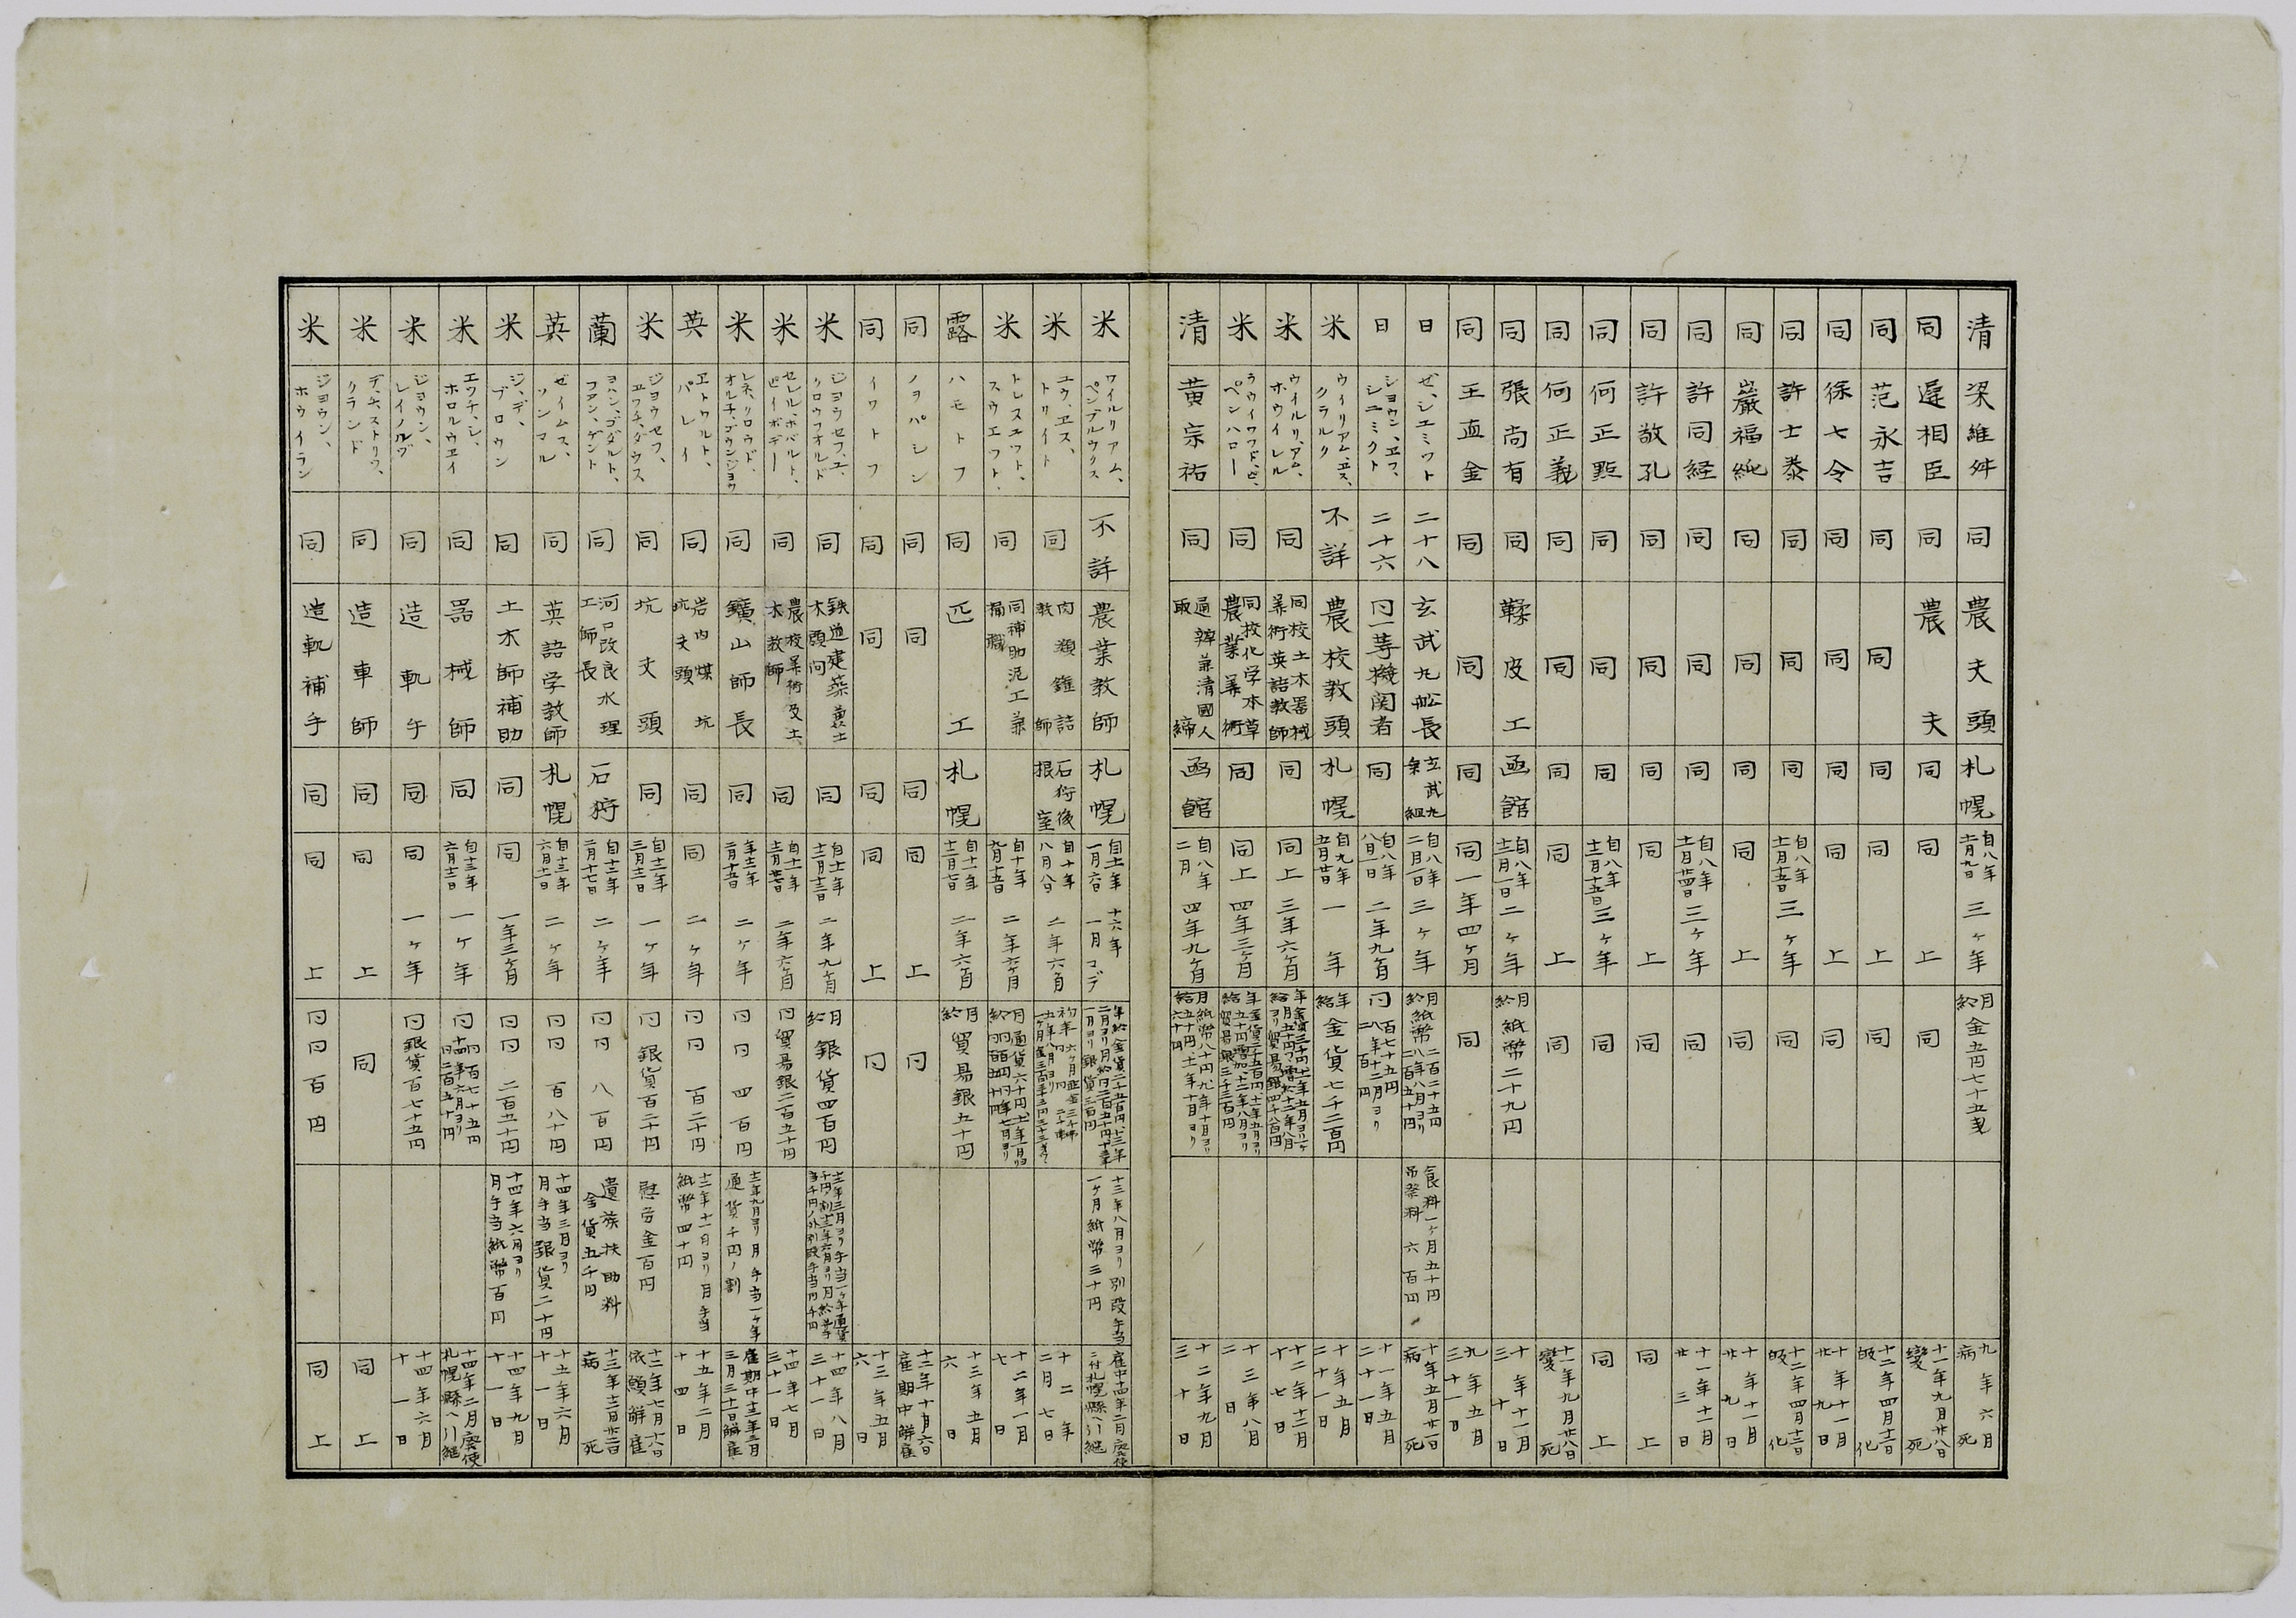 清 梁維舛 同 農夫頭 札幌 自八年 十二月九日 三ヶ年 月給 金五円七十五銭 九年六月 病死
同 遅相臣 同 農夫 同 同上 同 十一年九月廿八日 変死
同 范永吉 同 同 同 同上 同 十二年四月十二日 皈化
同 徐七令 同 同 同 同上 同 十年十一月 廿九日
同 許士泰 同 同 同 自八年 十一月十五日 三ヶ年 同 十二年四月十二日 皈化
同 巌福純 同 同 同 同上 同 十年十一月 廿九日
同 許同経 同 同 同 自八年 十一月廿四日 三ヶ年 同 十一年十一月 廿三日
同 許敬孔 同 同 同 同上 同 同上
同 何正點 同 同 同 自八年 十二月十五日 三ヶ年 同 同上
同 何正義 同 同 同 同上 同 十一年九月廿八日 変死
同 張尚有 同 鞣皮工 函館 自八年 十二月一日 二ヶ年 月給 紙幣二十九円 十年十一月 三十日
同 王血金 同 同 同 同 一年四ヶ月 同 九年五月 三十一日
日 ゼ、シエミツト 二十八 玄武丸船長 玄武丸乗組 自八年 二月一日 三ヶ年 月給紙幣 二百二十五円 八年八月ヨリ 二百五十円 食料一ヶ月五十円 吊祭料六百円 十年五月廿一日 病死
日 ショウン、ヱフ、シニミクト 二十六 同一等機関者 同 自八年 八月一日 二年九ヶ月 同 百七十五円 八年十二月ヨリ 二百円 十一年五月 二十一日
米 ウイリアム、ヱス、クラルク 不詳 農校教頭 札幌 自九年 五月廿日 一年 年給 金貨七千二百円 十年五月 二十一日
米 ウイルリ、アム、ホウイレル 同 同校土木器械 算術英語教師 同 同上 三年六ヶ月 十二年十二月 十七日
米 ペンハロー 同 同校化学本草 農業算術 同 同上 四年三ヶ月 十三年八月 二日
清 黄宗祐 同 通辯兼清國人 取締 函館 自八年 二月 四年九ヶ月 月給 紙幣八十円 九年十月ヨリ 五十円 十一年十月ヨリ 六十円 十二年九月 三十日
米 ウイルリアム、ペンデルウクス 不詳 農業教師 札幌 自十一年 一月六日 十六年 一月マデ 十三年八月ヨリ別段手当 一ヶ月紙幣三十円 雇中十四年二月廃使 ニ付札幌縣ヘ引継
米 ユウ、ヱス、トリイト 同 肉類鑵詰 教師 石狩後 根室 自十年 八月八日 二年六ヶ月 十二年 二月七日
米 トレスユワト、スウエフト 同 同補助泥工兼 桶職 自十年 九月十五日 二年六ヶ月 十二年一月 七日
露 ハモトフ 同 匹工 札幌 自十一年 十二月七日 二年六ヶ月 月給 貿易銀五十円 十三年五月 六日
同 ノヨパシン 同 同 同 同上 同 十二年十月六日 雇期中解雇
同 イワトフ 同 同 同 同上 同 十三年五月 六日
米 ジヨウセフ、ユ、クロウフオルド 同 鉄道建築兼土 木頭問 同 自十一年 十二月十三日 二年九ヶ月 月給 銀貨四百円 十四年八月 三十一日
米 セシル、ホバルト、ピイボデー 同 農校算術及土 木教師 同 自十一年 十二月廿七日 二年六ヶ月 同 貿易銀二百五十円 十四年七月 三十一日
米 レネ、クロウド、オルチ、ゴウンジヨウ 同 鑛山師長 同 二ヶ年 同同 四百円 十二年九月ヨリ月手当一ヶ年 通貨千円ノ割 雇期中十三年三月 三月三十一日解雇
英 ヱトワルト、パレイ 同 岩内煤坑 坑夫頭 同 同 二ヶ年 同同 百二十円 十二年十一月ヨリ月手当 紙幣四十円 十五年二月 十四日
米 ジヨウセフ、ヱワチ、ダウス 同 坑夫頭 同 自十二年 三月十三日 一ヶ年 同 銀貨百二十円 慰労金百円 十二年七月十八日 依願解雇
蘭 ヨハン、ゴダルト、フアン、ゲント 同 河口改良水理 工師長 石狩 自十二年 二月十七日 二ヶ年 同同 八百円 遺族扶助料 金貨五千円 十三年十二月廿二日 病死
英 ゼイムス、ソンマル 同 英語学教師 札幌 自十三年 六月十一日 二ヶ年 同同 百八十円 十四年三月ヨリ 月手当銀貨二十円 十五年六月 十一日
米 ジ、デ、ブロウン 同 土木師補助 同 同 一年三ヶ月 同同 二百五十円 十四年六月ヨリ 月手当紙幣百円 十四年九月 十一日
米 エワチ、シ、ホロルウヱイ 同 器械師 同 自十三年 六月十二日 一ヶ年 同 同百七十五円 十四年六月ヨリ 同二百五十円 十四年二月廃使 札幌縣ヘ引継
米 ジヨウン、レイノルヅ 同 造軌午 同 同 一ヶ年 同 銀貨百七十五円 十四年六月 十一日
米 デ、チ、ストリフ、クランド 同 造車師 同 同上 同 同上
米 ジヨウン、ホウイラン 同 造軌補手 同 同上 同同百円 同上